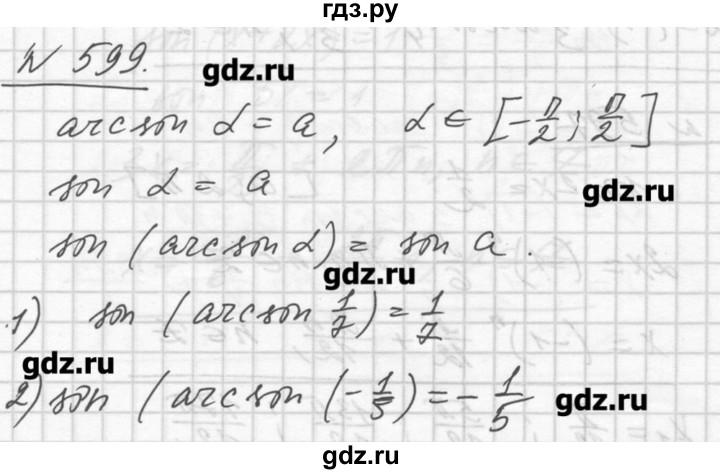 гдз.ру
N 599.
gdz.ru
arcsin α = a, α ∈ [-π/2; π/2]
sin α = a
gdz.ru
sin (arcsin α) = sin a.
gdz.ru
1) sin (arcsin 1/7) = 1/7
gdz.ru
2) sin (arcsin (-1/5) = -1/5
gdz.ru
gdz.ru